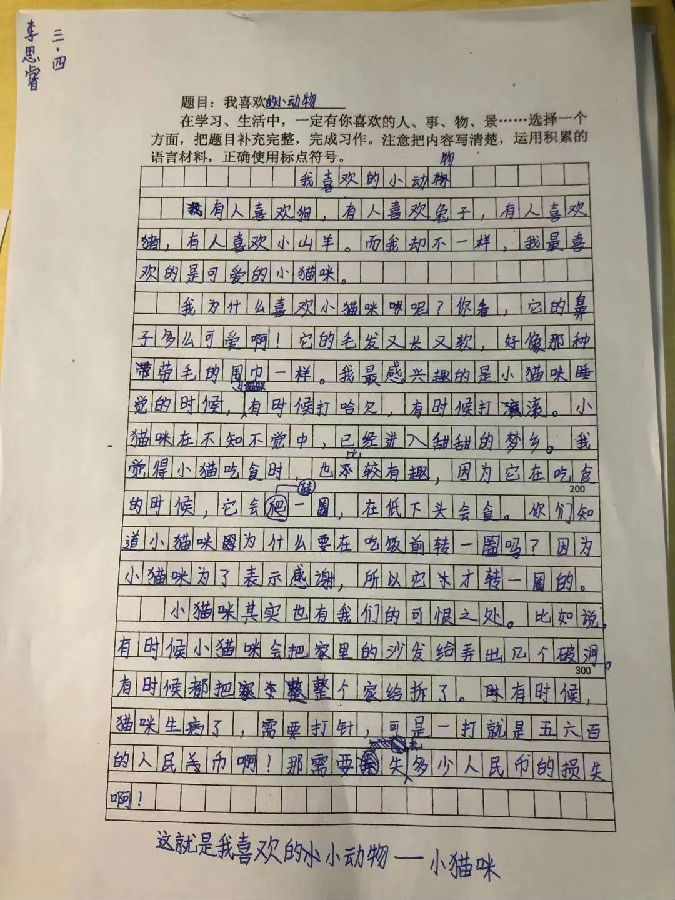 三.四
李思睿
题目：我喜欢的小动物
在学习、生活中，一定有你喜欢的人、事、物、景……选择一个
方面，把题目补充完整，完成习作。注意把内容写清楚，运用积累的
语言材料，正确使用标点符号。
我喜欢的小动物
有人喜欢狗，有人喜欢兔子，有人喜欢
猪，有人喜欢小山羊。而我却不一样，我最喜
欢的是可爱的小猫咪。
我为什么喜欢小猫咪呢？你看，它的鼻
子多么可爱啊！它的毛发又长又软，好像那种
带毛的围巾一样。我最感兴趣的是小猫咪睡
觉的时候，小猫咪有时候打哈欠，有时候打滚滚。小
猫咪在不知不觉中，已经进入甜甜的梦乡。我
觉得小猫吃食时，也比较有趣，因为它在吃食
200
的时候，它会转一圈，在低下头会食。你们知
道小猫咪因为什么要在吃饭前转一圈吗？因为
小猫咪为了表示感谢，所以它才转一圈的。
小猫咪其实也有我们的可恨之处。比如说，
有时候小猫咪会把家里的沙发给弄出几个破洞。
300
有时候都把整个家给拆了。有时候，
猫咪生病了，需要打针，可是一打就是五六百
的人民币啊！那需要失去多少人民币的损失
啊！
这就是我喜欢的小动物——小猫咪